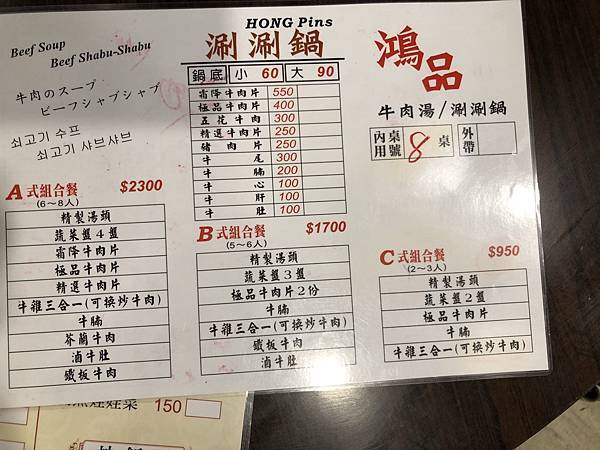 Beef Soup
Beef Shabu-Shabu
牛肉のスープ
ビーフシャブシャブ
쇠고기 수프
쇠고기 샤브샤브
HONG Pins
涮涮鍋
鍋底 小 60 大 90
霜降牛肉片 550
極品牛肉片 400
五花牛肉 300
精選牛肉片 250
豬肉片 250
牛尾 300
牛腩 200
牛心 100
牛肝 100
牛肚 100
鴻品
牛肉湯/涮涮鍋
內用 桌號 8 桌 外帶
A式組合餐 $2300
(6~8人)
精製湯頭
蔬菜盤4盤
霜降牛肉片
極品牛肉片
精選牛肉片
牛雜三合一(可換炒牛肉)
牛腩
芥蘭牛肉
滷牛肚
鐵板牛肉
B式組合餐 $1700
(5~6人)
精製湯頭
蔬菜盤3盤
極品牛肉片2份
牛腩
牛雜三合一(可換炒牛肉)
鐵板牛肉
滷牛肚
C式組合餐 $950
(2~3人)
精製湯頭
蔬菜盤2盤
極品牛肉片
牛腩
牛雜三合一(可換炒牛肉)
娃娃菜 150